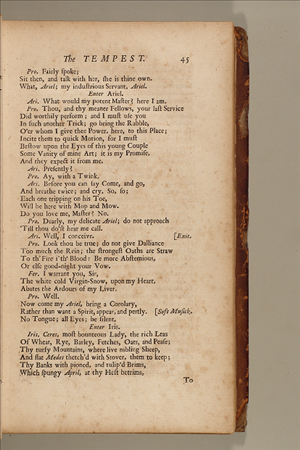 The TEMPEST. 45
Pro. Fairly spoke;
Sit then, and talk with her, she is thine own.
What, Ariel; my industrious Servant, Ariel.
Enter Ariel.
Ari. What would my potent Master? here I am.
Pro. Thou, and thy meaner Fellows, your last Service
Did worthily perform; and I must use you
In such another Trick; go bring the Rabble,
O'er whom I give thee Power, here, to this Place;
Incite them to quick Motion, for I must
Bestow upon the Eyes of this young Couple
Some Vanity of mine Art; it is my Promise,
And they expect it from me.
Ari. Presently?
Pro. Ay, with a Twink.
Ari. Before you can say Come, and go,
And breathe twice; and cry, So, so;
Each one tripping on his Toe,
Will be here with Mop and Mow.
Do you love me, Master? No.
Pro. Dearly, my delicate Ariel; do not approach
'Till thou do'st hear me call.
Ari. Well, I conceive. [Exit.
Pro. Look thou be true; do not give Dalliance
Too much the Rein; the strongest Oaths are Straw
To th' Fire i'th' Blood: Be more Abstemious,
Or else good-night your Vow.
Fer. I warrant you, Sir,
The white cold Virgin-Snow, upon my Heart,
Abates the Ardours of my Liver.
Pro. Well.
Now come my Ariel, bring a Corolary,
Rather than want a Spirit, appear, and pertly. [Soft Musick.
No Tongue; all Eyes; be silent.
Enter Iris.
Iris. Ceres, most bounteous Lady, the rich Leas
Of Wheat, Rye, Barley, Fetches, Oats, and Pease;
Thy turfy Mountains, where live nibling Sheep,
And flat Medes thetch'd with Stover, them to keep;
Thy Banks with pioned, and tulip'd Brims,
Which spungy April, at thy Hest betrims,
To